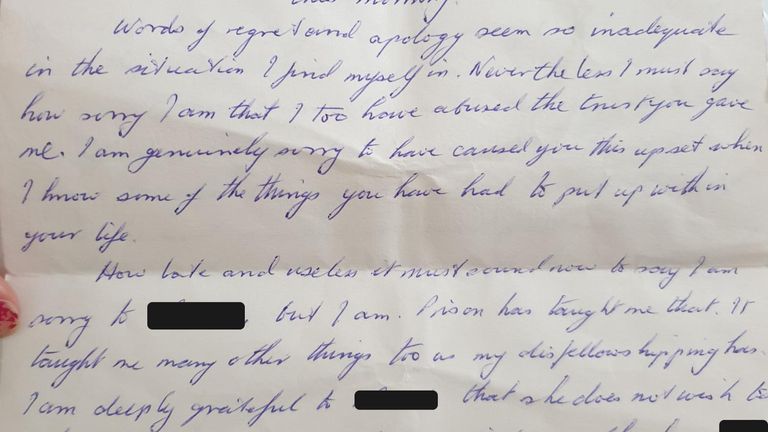 this morning.
Words of regret and apology seem so inadequate
in the situation I find myself in. Nevertheless I must say
how sorry I am that I too have abused the trust you gave
me. I am genuinely sorry to have caused you this upset when
I know some of the things you have had to put up with in
your life.
How late and useless it must sound now to say I am
sorry to but I am. Prison has taught me that. It
taught me many other things too as my disfellowshipping has.
I am deeply grateful to that she does not wish to